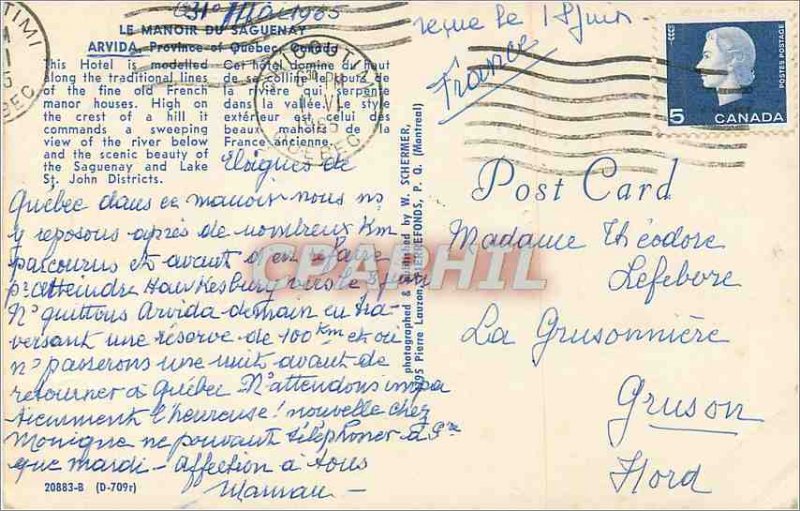 31 Mai 1965
LE MANOIR DU SAGUENAY
ARVIDA, Province of Quebec, Canada
This Hotel is modelled
along the traditional lines
of the fine old French
manor houses. High on
the crest of a hill it
commands a sweeping
view of the river below
and the scenic beauty of
the Saguenay and Lake
St. John Districts.
Cet hôtel domine du haut
de sa colline le cours de
la rivière qui serpente
dans la vallée. Le style
extérieur est celui des
beaux manoirs de la
France ancienne.
Eloignés de
Québec dans ce manoir nous ns
y reposons après de nombreux Km
parcourus et avant d'en refaire
pr atteindre Hawkesbury vers le 5 juin
Ns quittons Arvida demain en tra-
versant une réserve de 100 km et où
ns passerons une nuit avant de
retourner à Québec Ns attendons impa
tiemment l'heureuse! nouvelle chez
Monique ne pouvant téléphoner à
que mardi - Affection à tous
Maman -
20883-B (D-709r)
photographed & published by W. SCHERMER,
Pierre Lauzon, PIERREFONDS, P. Q. (Montreal)
reçue le 18 juin
France
5 CANADA
POSTES POSTAGE
Post Card
Madame Théodore
Lefebvre
La Grusonnière
Gruson
Nord
CPAPHIL